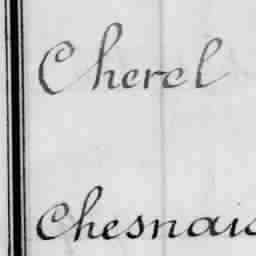 Cherel
Chesnais